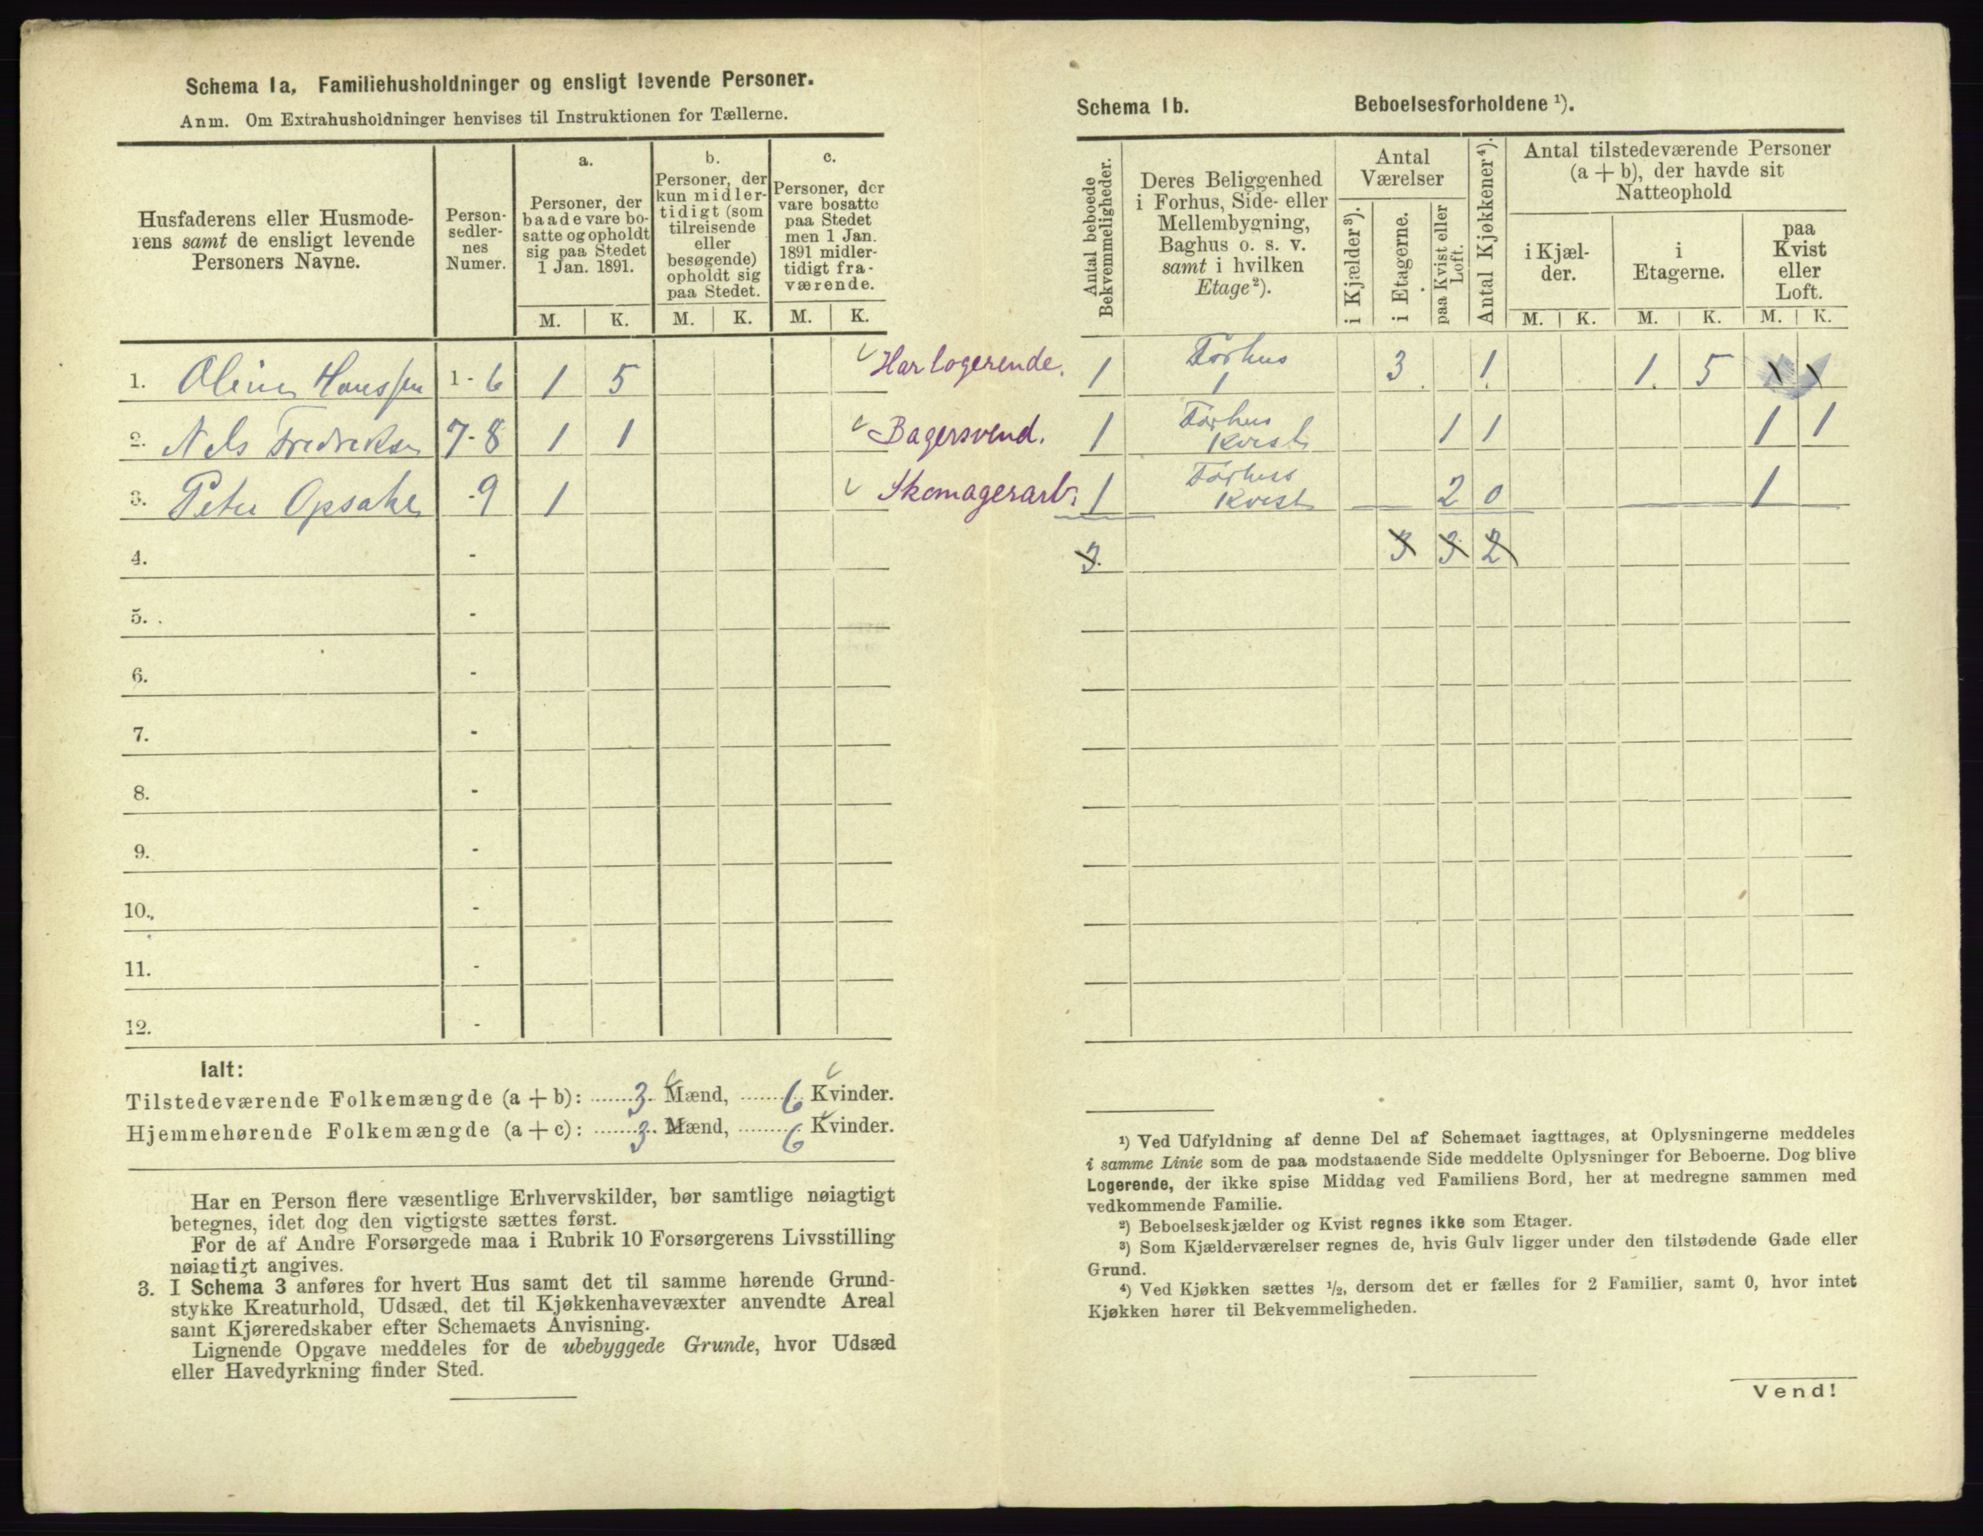 Schema 1a. Familiehusholdninger og ensligt levende Personer.
Anm. Om Extrahusholdninger henvises til Instruktionen for Tællerne.
Husfaderens eller Husmode-
rens samt de ensligt levende
Personers Navne.
Person-
sedler-
nes
Numer.
a.
Personer, der
baade vare bo-
satte og opholdt
sig paa Stedet
1 Jan. 1891.
b.
Personer, der
kun midler-
tidigt (som
tilreisende
eller
besøgende)
opholdt sig
paa Stedet.
c.
Personer, der
vare bosatte
paa Stedet
men 1 Jan.
1891 midler-
tidigt fra-
værende.
M. K. M. K. M. K.
1. Olina Hanssen 1 - 6 1 5 Har logerende.
2. Nels Fredriksen 7 - 8 1 1 Bagersvend.
3. Peter Opsaker - 9 1 Skomagerarb.
4. -
5. -
6. -
7. -
8. -
9. -
10. -
11. -
12. -
Ialt:
Tilstedeværende Folkemængde (a + b): 3 Mænd, 6 Kvinder.
Hjemmehørende Folkemængde (a + c): 3 Mænd, 6 Kvinder.
Har en Person flere væsentlige Erhvervskilder, bør samtlige nøiagtigt
betegnes, idet dog den vigtigste sættes først.
For de af Andre Forsørgede maa i Rubrik 10 Forsørgerens Livsstilling
nøiagtigt angives.
3. I Schema 3 anføres for hvert Hus samt det til samme hørende Grund-
stykke Kreaturhold, Udsæd, det til Kjøkkenhavevæxter anvendte Areal
samt Kjøreredskaber efter Schemaets Anvisning.
Lignende Opgave meddeles for de ubebyggede Grunde, hvor Udsæd
eller Havedyrkning finder Sted.
Schema 1b. Beboelsesforholdene ¹).
Antal beboede
Bekvemmeligheder.
Deres Beliggenhed
i Forhus, Side- eller
Mellembygning,
Baghus o. s. v.
samt i hvilken
Etage²).
Antal
Værelser
i Kjælder³).
i Etagerne.
paa Kvist eller
Loft.
Antal Kjøkkener⁴).
Antal tilstedeværende Personer
(a + b), der havde sit
Natteophold
i Kjæl-
der.
i
Etagerne.
paa
Kvist
eller
Loft.
M. K. M. K. M. K.
1 Forhus 1 3 1 1 5 x x
1 Forhus Kvist 1 1 1 1
1 Forhus Kvist 2 0 1
3 3 3 2
¹) Ved Udfyldning af denne Del af Schemaet iagttages, at Oplysningerne meddeles
i samme Linie som de paa modstaaende Side meddelte Oplysninger for Beboerne. Dog blive
Logerende, der ikke spise Middag ved Familiens Bord, her at medregne sammen med
vedkommende Familie.
²) Beboelseskjælder og Kvist regnes ikke som Etager.
³) Som Kjælderværelser regnes de, hvis Gulv ligger under den tilstødende Gade eller
Grund.
⁴) Ved Kjøkken sættes ½, dersom det er fælles for 2 Familier, samt 0, hvor intet
Kjøkken hører til Bekvemmeligheden.
Vend!